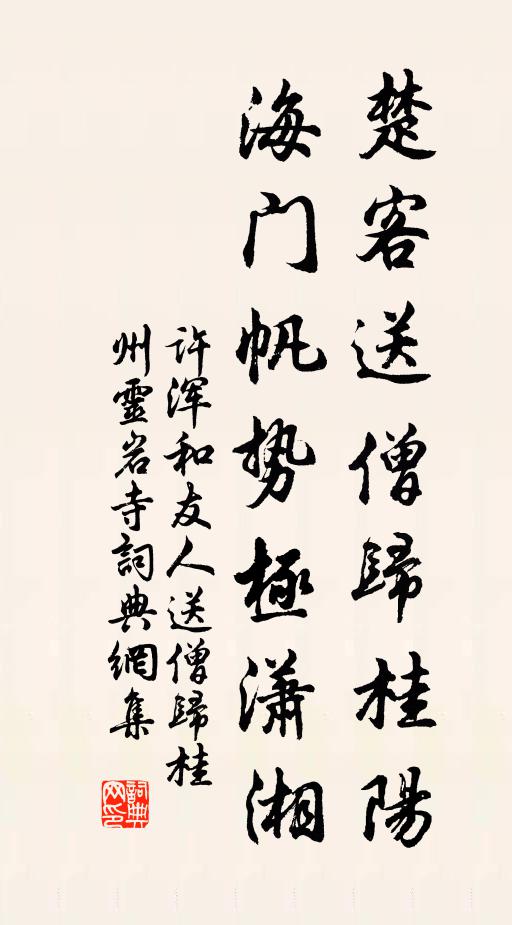 楚客送僧歸桂陽
海门帆势極潇湘
许浑和友人送僧歸桂
州靈岩寺詞典網集
詞典
网印